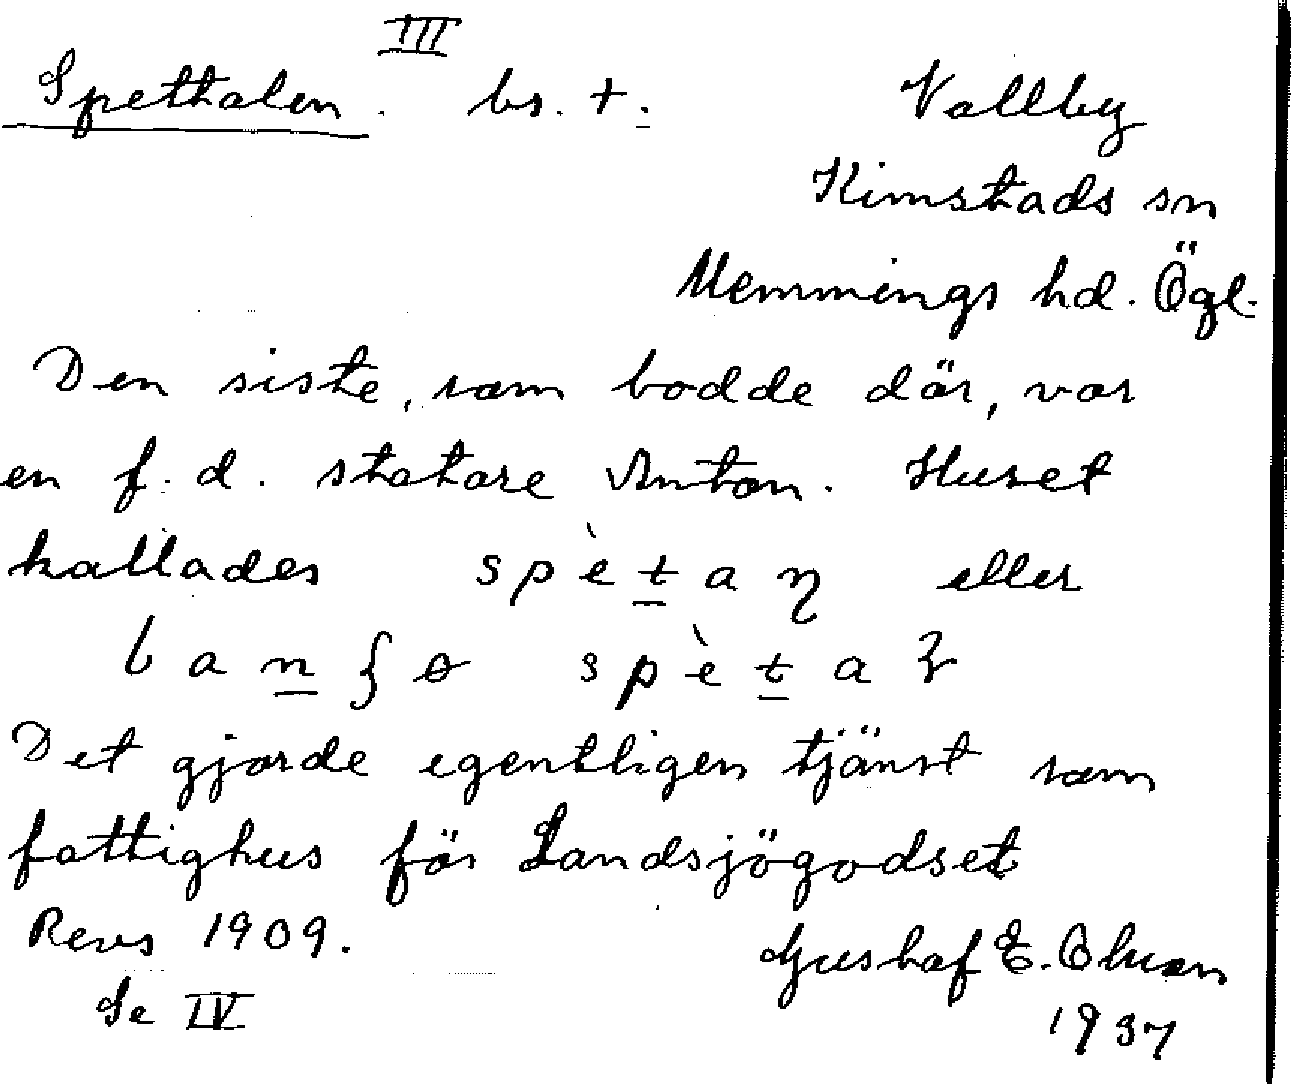 III
Spettalen. bs. †. Vallby
Kimstads sn
Memmings hd. Ögl.
Den siste, som bodde där, var
en f. d. statare Anton. Huset
kallades spèt̲aŋ eller
lan̲ʃɵ spèt̲aɮ
Det gjorde egentligen tjänst som
fattighus för Landsjögodset
Revs 1909. Gustaf E. Ohlson
Se IV 1937